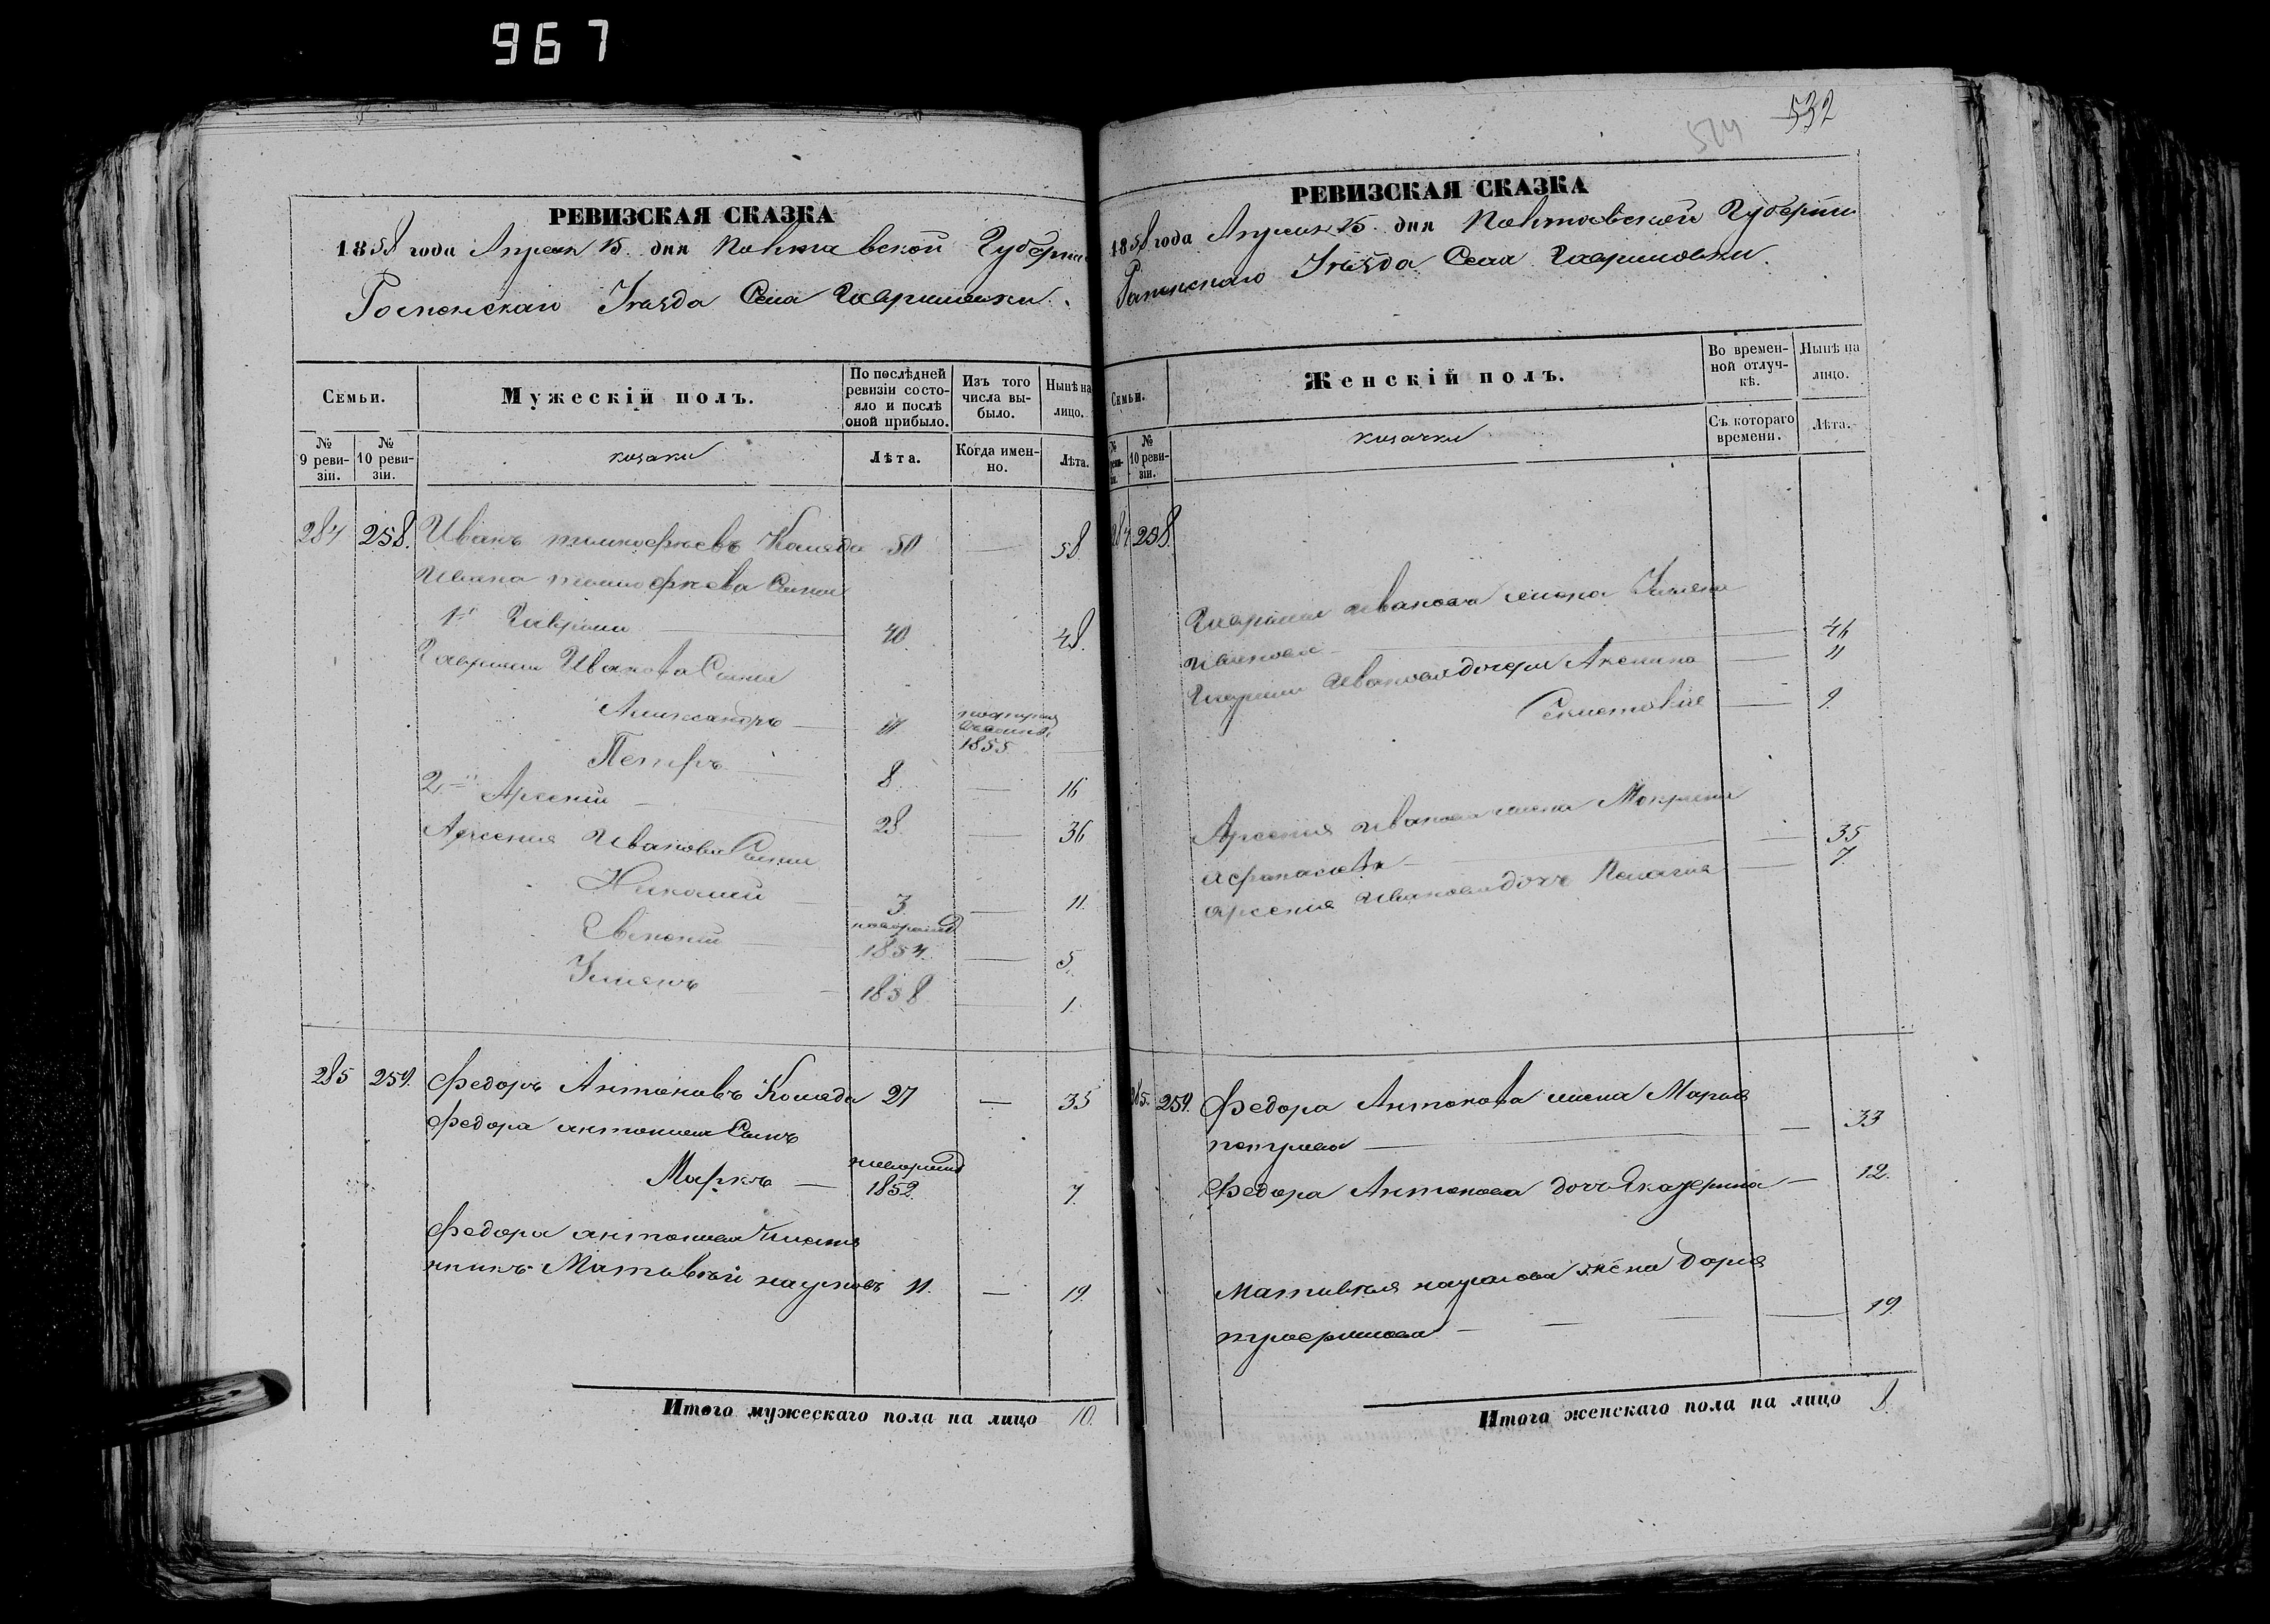 967
РЕВИЗСКАЯ СКАЗКА
1858 года Апреля 15 дня Полтавской Губерніи
Роменскаго Уѣзда Села Гавришовки.
Семьи.
Мужескій полъ.
По послѣдней ревизіи состояло и послѣ оной прибыло.
Изъ того числа выбыло.
Нынѣ на лицо.
№ 9 ревизіи.
№ 10 ревизіи.
козаки
Лѣта.
Когда именно.
Лѣта.
284 258. Иванъ Тимофѣевъ Коляда 50 — 58
Ивана Тимофѣева Сыны
1й Гаврило — 40 48.
Гаврила Иванова Сыны
Александръ — 11 1855
Петръ — 8. — 16
2й Арсеній — 28. — 36
Арсенія Иванова Сыны
Николай — 3 — 11.
новорожд
1854. — 5.
1858 — 1.
285 259. Федоръ Антоновъ Коляда 27 — 35
Федора Антонова Сынъ
Маркъ — новорожд 1852. 7.
Федора Антонова племянникъ Матвѣй Наумовъ 11. — 19.
Итого мужескаго пола на лицо 10.
532
РЕВИЗСКАЯ СКАЗКА
1858 года Апреля 15 дня Полтавской Губерніи
Роменскаго Уѣзда Села Гавришовки.
Семьи.
Женскій полъ.
Во временной отлучкѣ.
Нынѣ на лицо.
№ 10 ревизіи.
козачки
Съ котораго времени.
Лѣта.
284 258
Гаврила Иванова жена Ульяна
Иванова — 46
Гаврила Иванова дочери Акилина — 11
— 9.
Арсенія Иванова жена Мокрина
Афанасіева — 35
Арсенія Иванова дочь Пелагія — 7.
285. 259. Федора Антонова жена Марія
Петрова — 33
Федора Антонова дочь Екатерина — 12.
Матвѣя Наумова жена Дарія
19.
Итого женскаго пола на лицо 8.